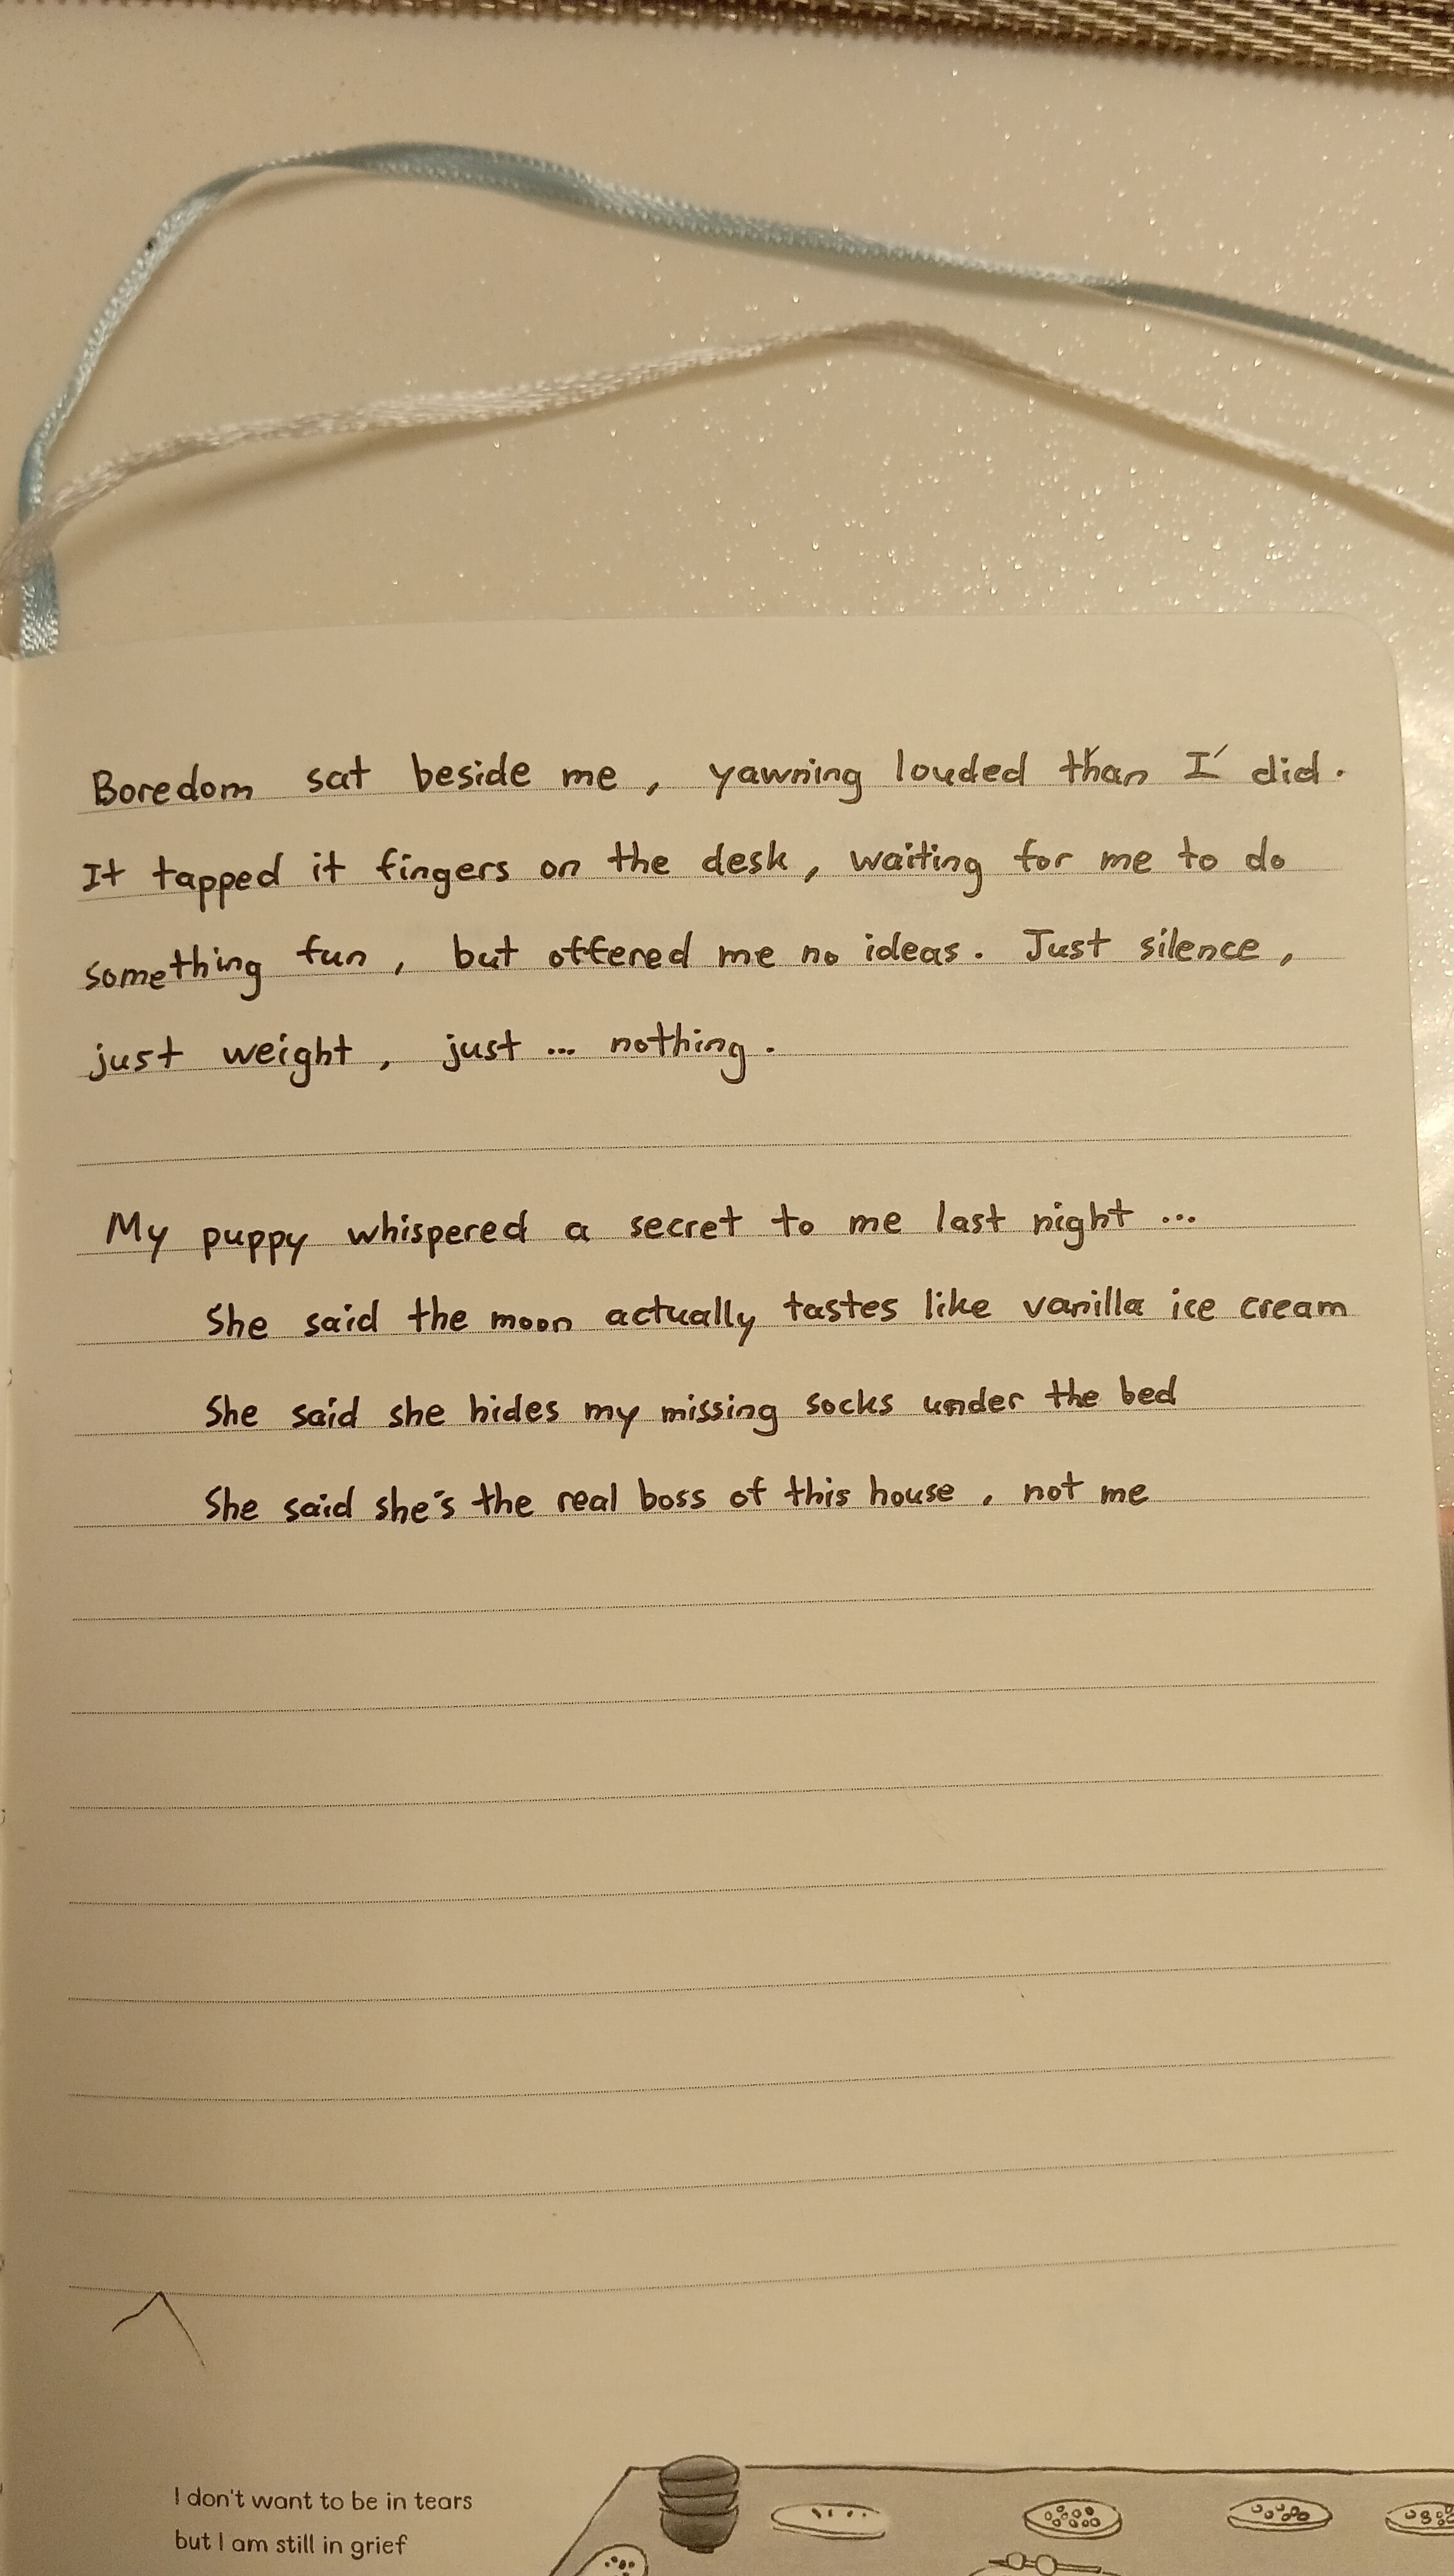 Boredom sat beside me, yawning louded than I did.
It tapped it fingers on the desk, waiting for me to do
something fun, but offered me no ideas. Just silence,
just weight, just ... nothing.
My puppy whispered a secret to me last night ...
She said the moon actually tastes like vanilla ice cream
She said she hides my missing socks under the bed
She said she's the real boss of this house, not me
I don't want to be in tears
but I am still in grief